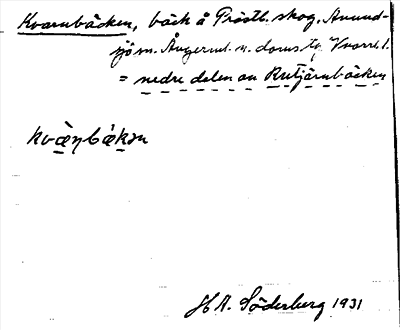 Kvarnbäcken, bäck å Prästb. skog, Anund-
sjö sn. Ångerml. v. dorus
= nedre delen av Rutjärnbäcken
kvæ̀ŋbækɜn
H A. Söderberg 1931